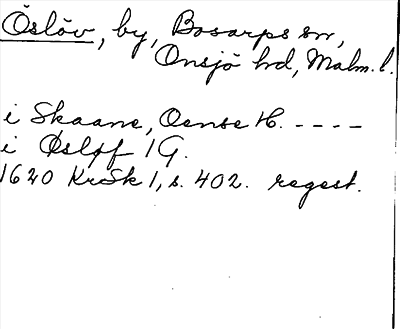 Öslöv, by, Bosarps sn,
Onsjö hd, Malm. l.
i Skaane, Oense H. ----
i Øsløf 1 G.
1620 KrSk 1, s. 402. regest.